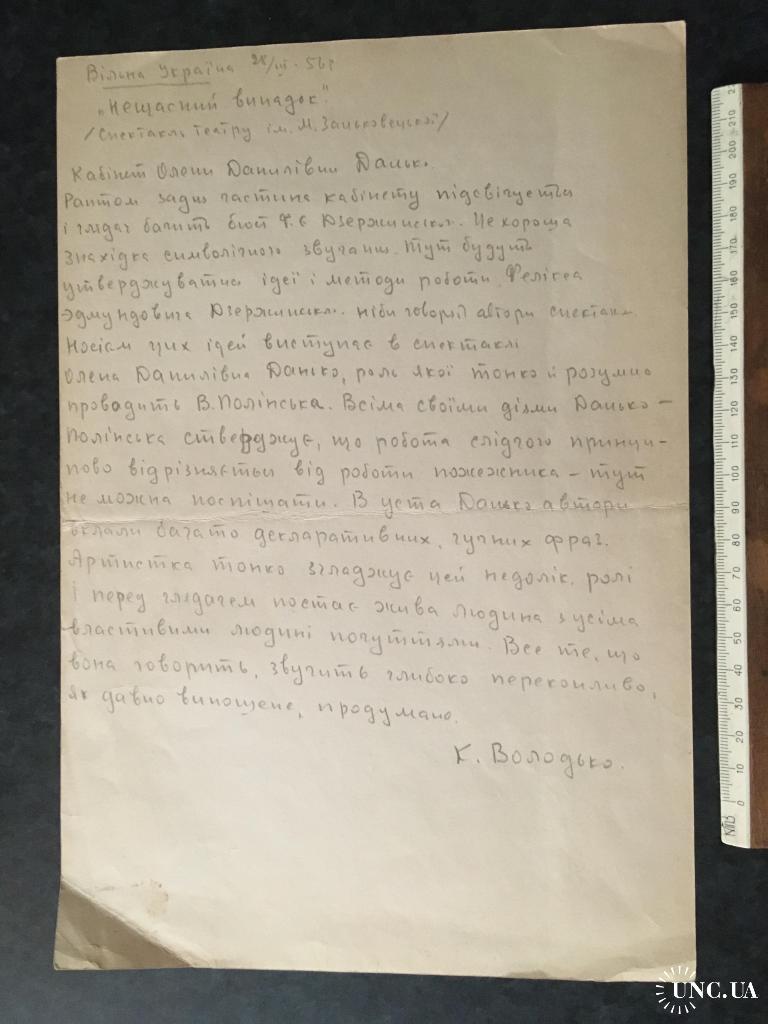 Вільна Україна 28/III-56р
„Нещасний випадок".
/Спектакль театру ім. М. Заньковецької/
Кабінет Олени Данилівни Данько.
Раптом задня частина кабінету підсвічується
і глядач бачить бюст Ф.Є Дзержинськ. Це хороша
знахідка символічного звучання. Тут будуть
утверджуватись ідеї і методи роботи Фелікса
Эдмундовича Дзержинськ. ніби говорять автори спектакл.
Носієм цих ідей виступає в спектаклі
Олена Данилівна Данько, роль якої тонко й розумно
проводить В. Полінська. Всіма своїми діями Данько –
Полінська стверджує, що робота слідчого принци-
пово відрізняється від роботи пожежника – тут
не можна поспішати. В уста Данько автори
вклали багато декларативних, гучних фраз.
Артистка тонко згладжує цей недолік ролі
і перед глядачем постає жива людина з усіма
властивими людині почуттями. Все те, що
вона говорить, звучить глибоко переконливо,
як давно виношене, продумано.
К. Володько.
210
200
190
180
170
160
150
140
130
120
110
100
90
80
70
60
50
40
30
20
10
0
UNC.UA